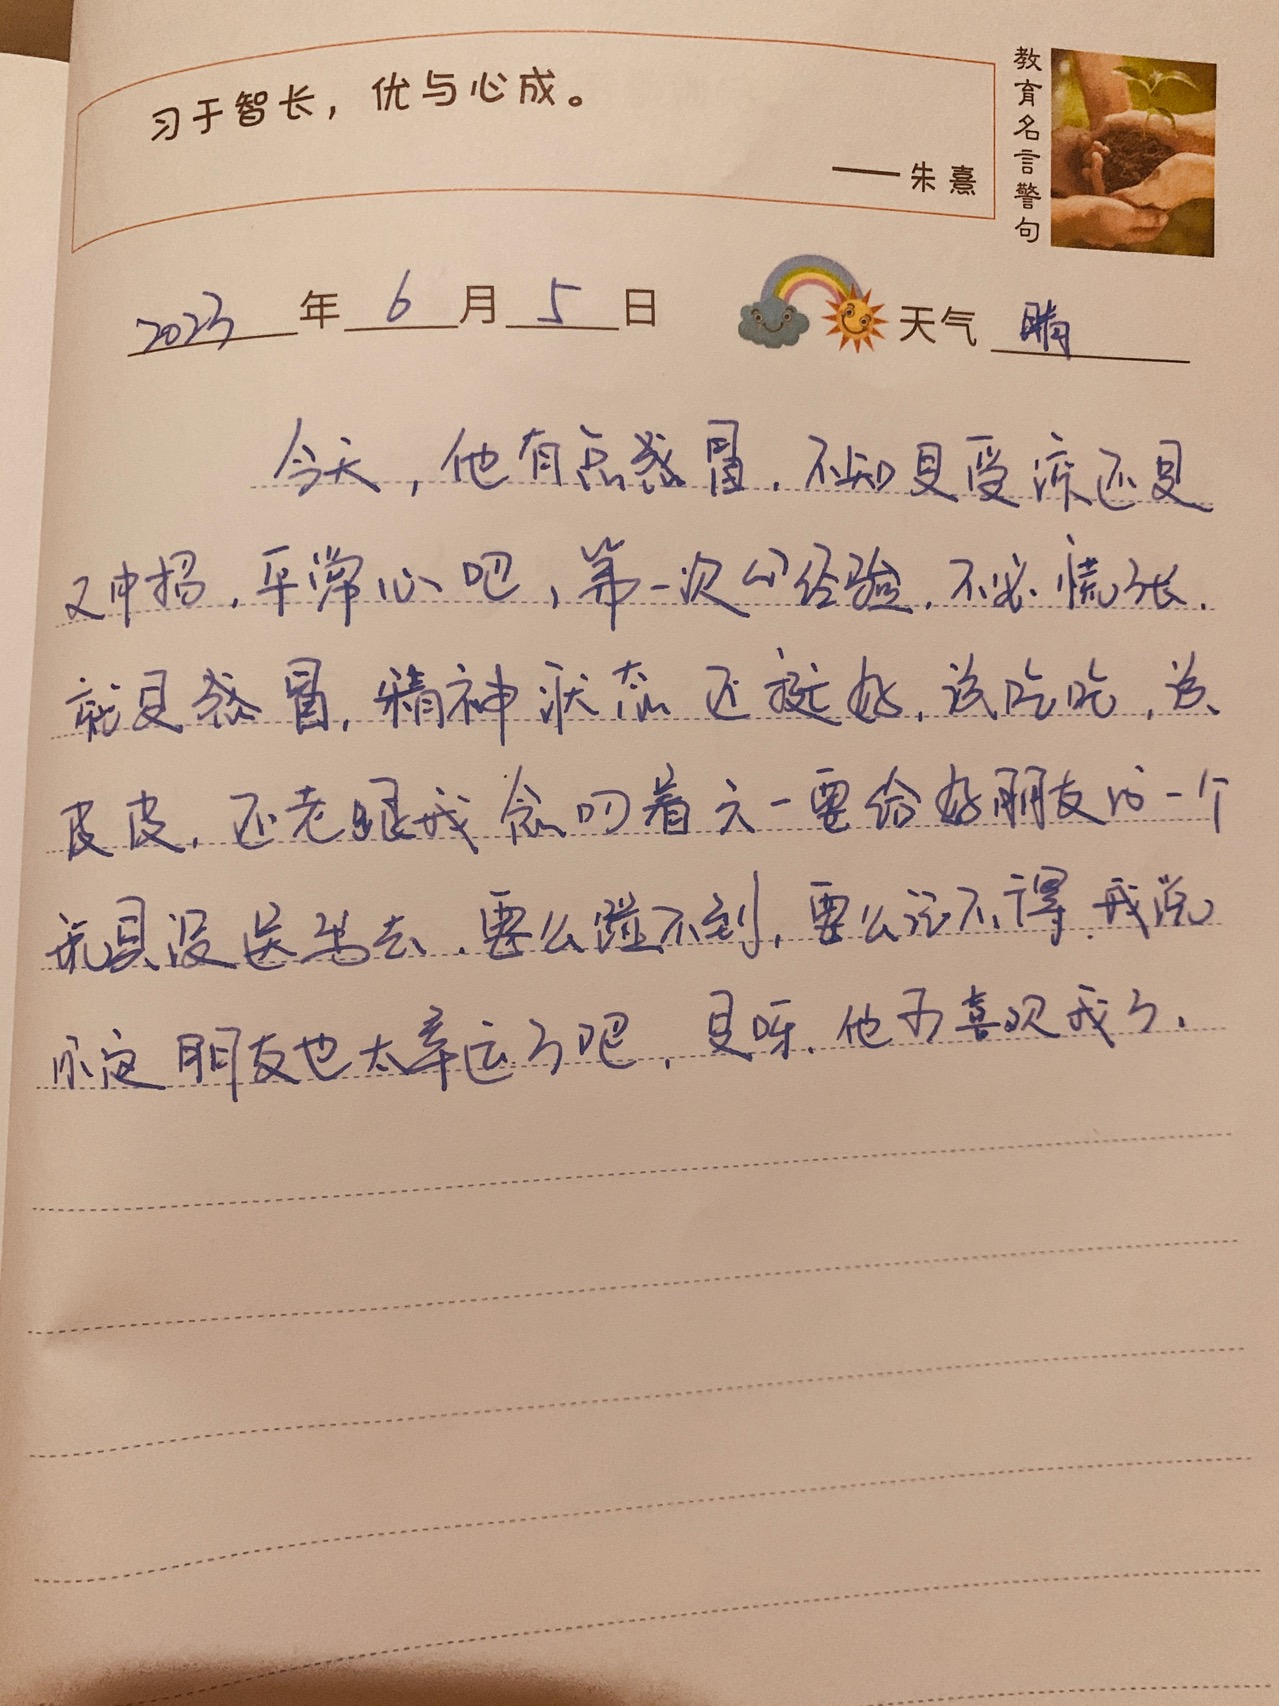 习于智长，优与心成。
——朱熹
教育名言警句
2023年6月5日 天气 晴
今天，他有点感冒，不知是受凉还是
又中招，平常心吧，第一次的经验，不必慌张，
就是感冒，精神状态还挺好，该吃吃，该
皮皮，还老跟我念叨着六一要给好朋友的一个
玩具没送出去，要么碰不到，要么记不得，我说
你这朋友也太幸运了吧，是呀，他可喜欢我了，